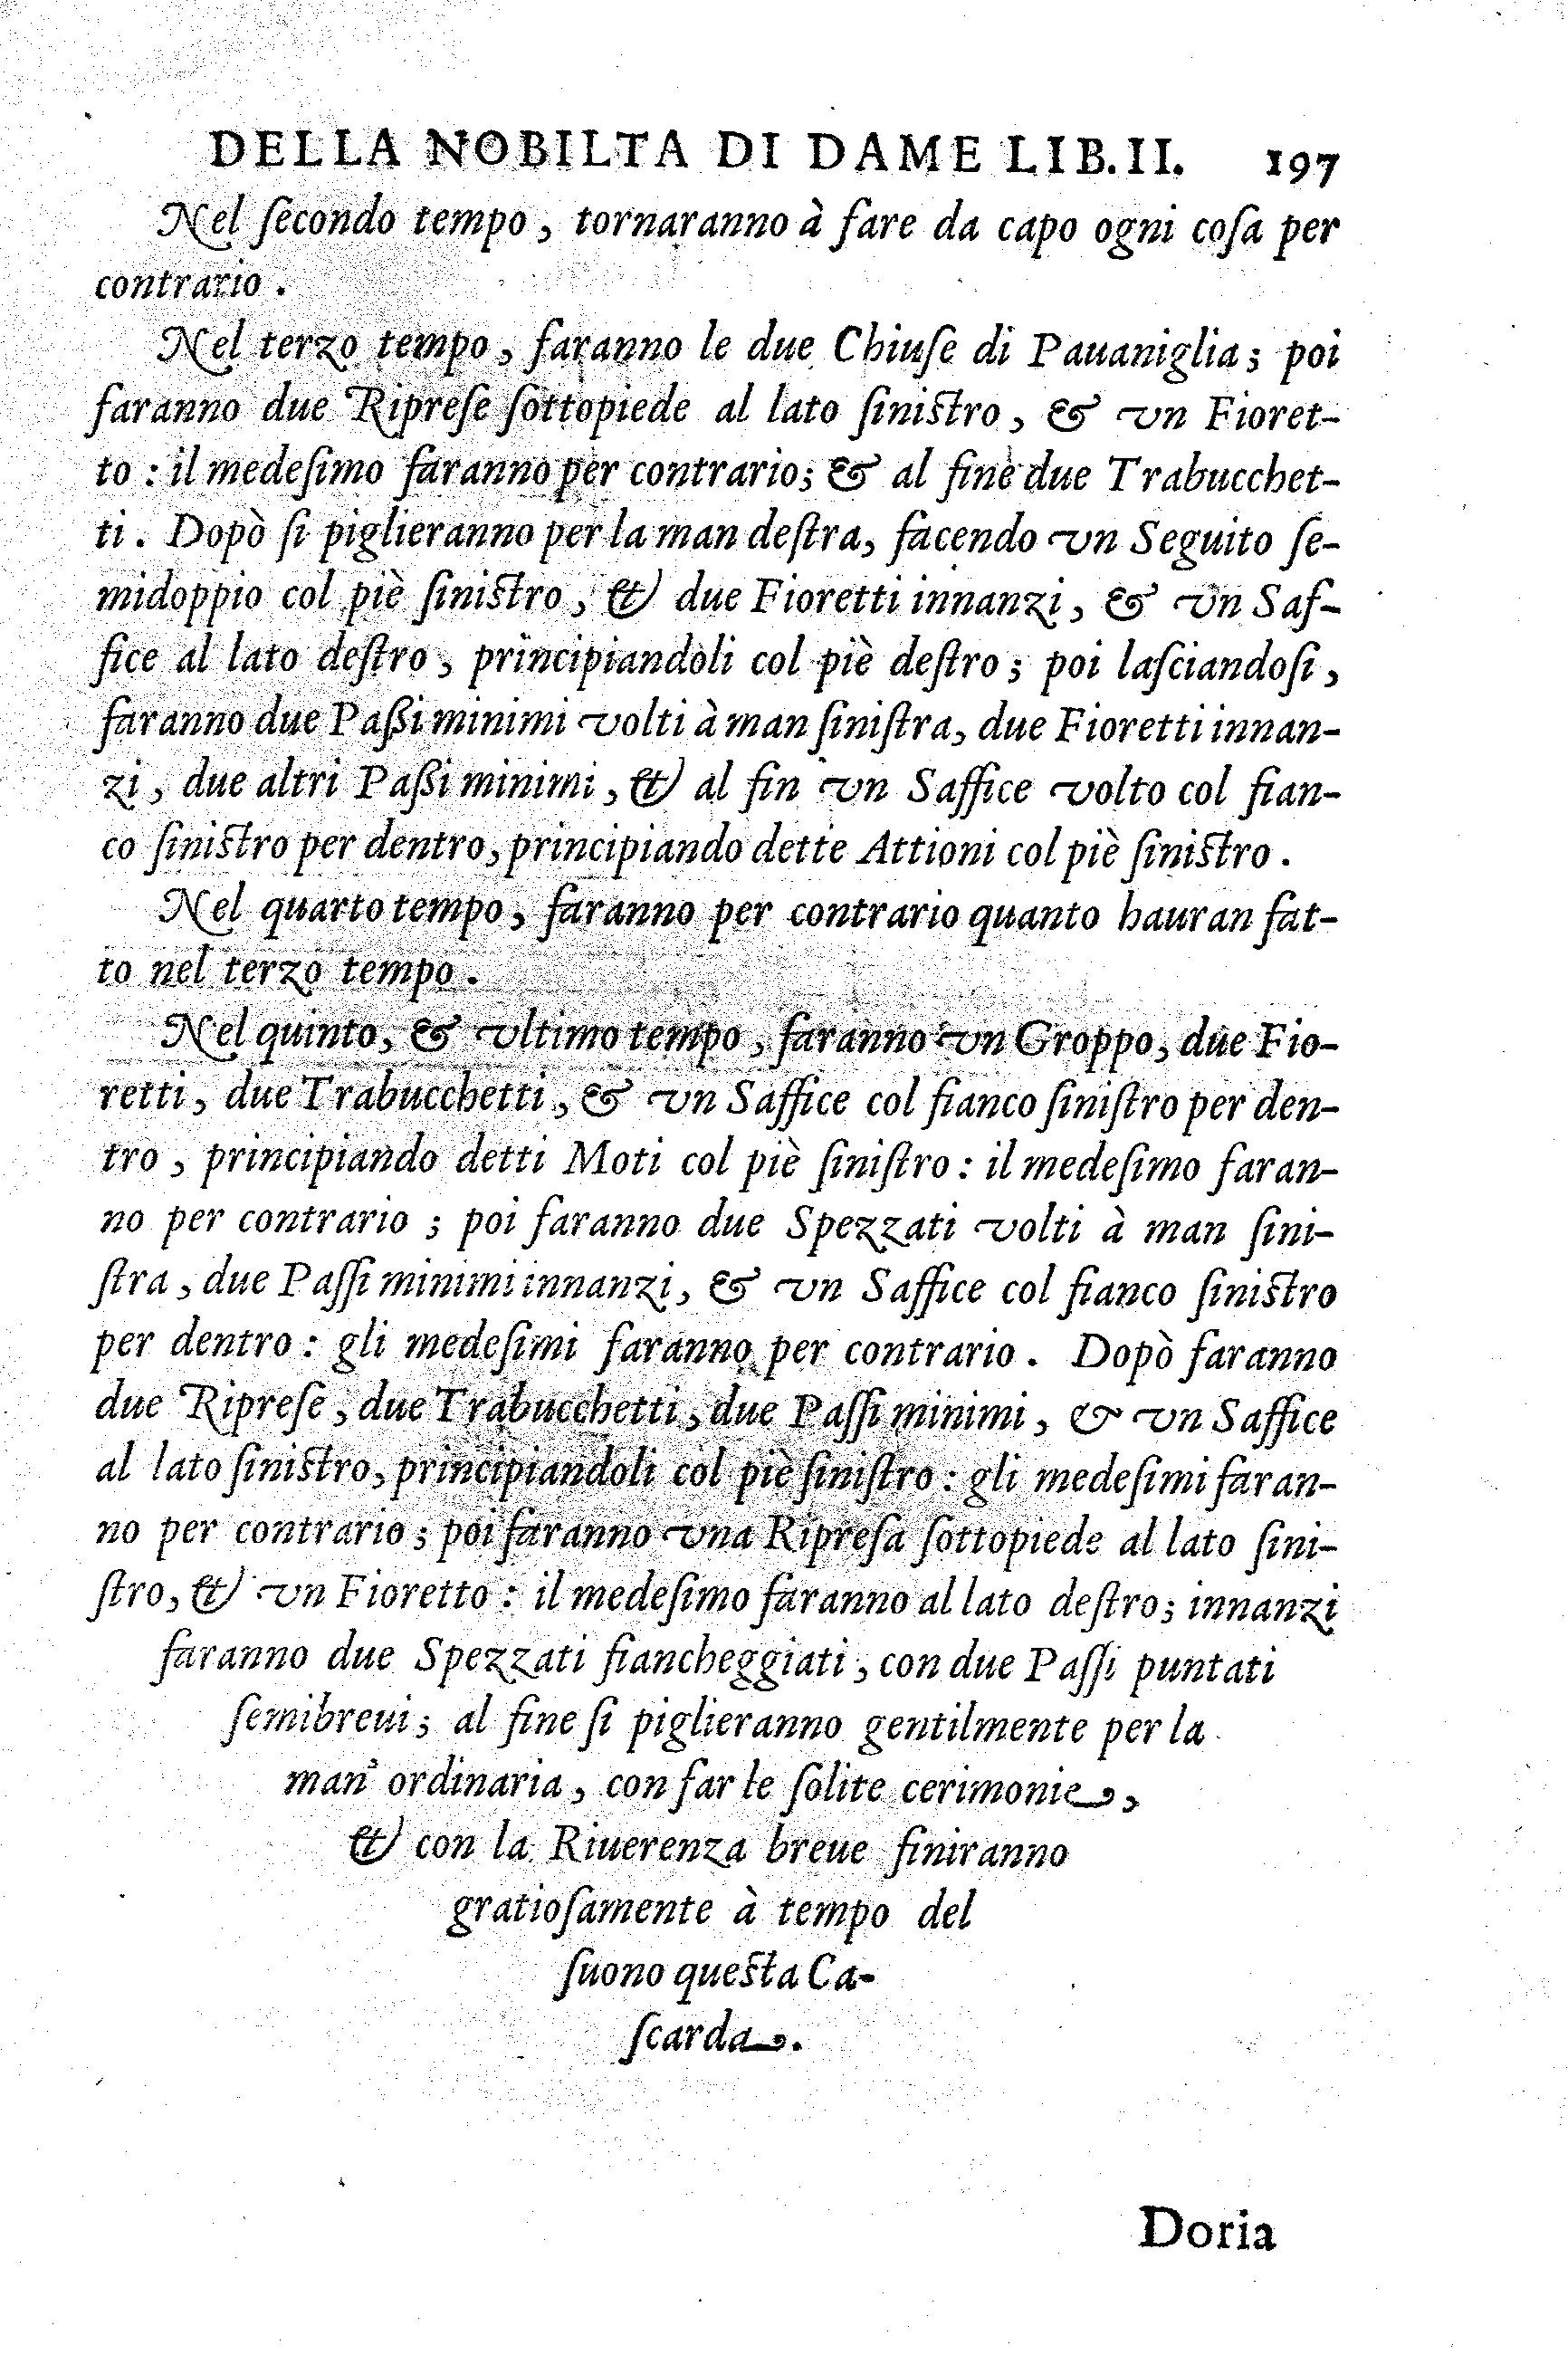 DELLA NOBILTA DI DAME LIB. II. 197
Nel ſecondo tempo, tornaranno à fare da capo ogni coſa per
contrario.
Nel terzo tempo, faranno le due Chiuſe di Pauaniglia; poi
faranno due Ripreſe ſottopiede al lato ſiniſtro, & vn Fioret-
to: il medeſimo faranno per contrario; & al fine due Trabucchet-
ti. Dopò ſi piglieranno per la man deſtra, facendo vn Seguito ſe-
midoppio col piè ſiniſtro, & due Fioretti innanzi, & vn Saf-
fice al lato deſtro, principiandoli col piè deſtro; poi laſciandoſi,
faranno due Paßi minimi volti à man ſiniſtra, due Fioretti innan-
zi, due altri Paßi minimi, & al fin vn Saffice volto col fian-
co ſiniſtro per dentro, principiando dette Attioni col piè ſiniſtro.
Nel quarto tempo, faranno per contrario quanto hauran fat-
to nel terzo tempo.
Nel quinto, & vltimo tempo, faranno vn Groppo, due Fio-
retti, due Trabucchetti, & vn Saffice col fianco ſiniſtro per den-
tro, principiando detti Moti col piè ſiniſtro: il medeſimo faran-
no per contrario; poi faranno due Spezzati volti à man ſini-
ſtra, due Paſſi minimi innanzi, & vn Saffice col fianco ſiniſtro
per dentro: gli medeſimi faranno per contrario. Dopò faranno
due Ripreſe, due Trabucchetti, due Paſſi minimi, & vn Saffice
al lato ſiniſtro, principiandoli col piè ſiniſtro: gli medeſimi faran-
no per contrario; poi faranno vna Ripreſa ſottopiede al lato ſini-
ſtro, & vn Fioretto: il medeſimo faranno al lato deſtro; innanzi
faranno due Spezzati fiancheggiati, con due Paſſi puntati
ſemibreui; al fine ſi piglieranno gentilmente per la
man ordinaria, con far le ſolite cerimonie,
& con la Riuerenza breue finiranno
gratioſamente à tempo del
ſuono queſta Ca-
ſcarda.
Doria